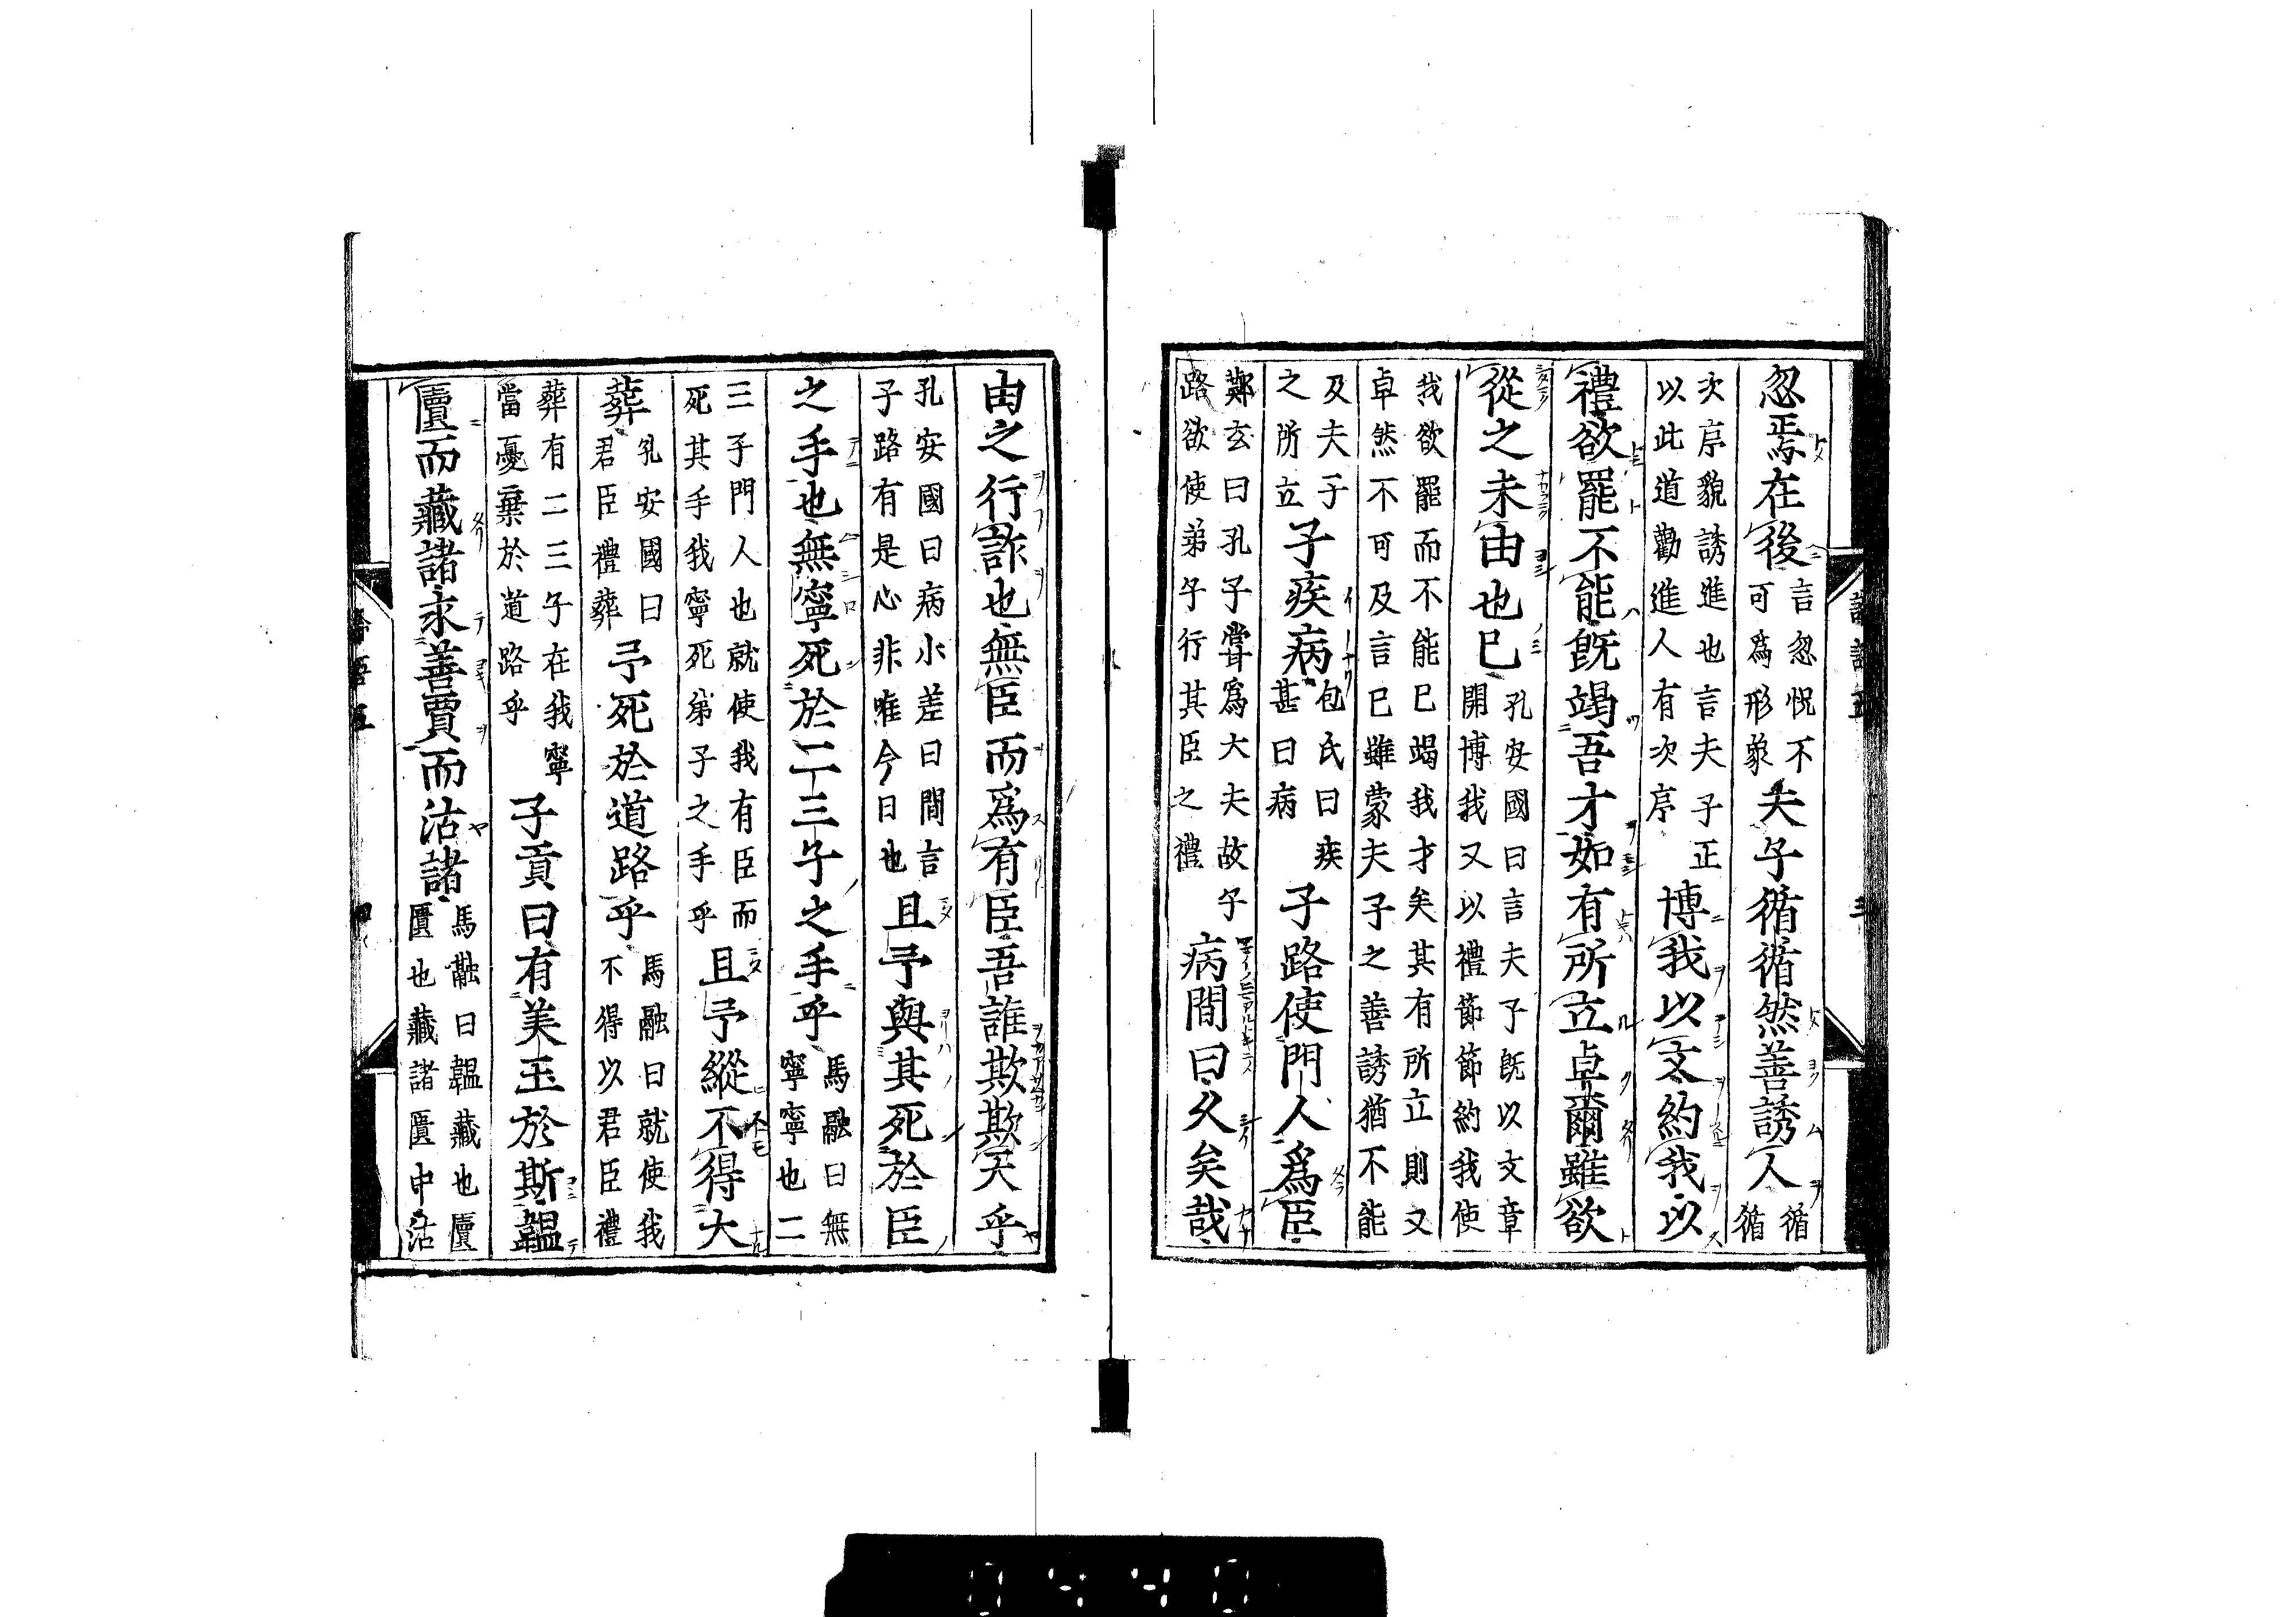 忽焉在後言忽怳不可爲形象夫子循循然善誘人循循
次序貌誘進也言夫子正以此道勸進人有次序博我以文約我以
禮欲罷不能旣竭吾才如有所立卓爾雖欲
從之末由也已孔安國曰言夫子旣以文章開博我又以禮節節約我使
我欲罷而不能已竭我才矣其有所立則又卓然不可及言已雖蒙夫子之善誘猶不能
及夫子之所立子疾病包氏曰疾甚曰病子路使門人爲臣
鄭玄曰孔子甞爲大夫故子路欲使弟子行其臣之禮病間曰久矣哉
由之行詐也無臣而爲有臣吾誰欺欺天乎
孔安國曰病小差曰間言子路有是心非唯今日也且予與其死於臣
之手也無寧死於二三子之手乎馬融曰無寧寧也二
三子門人也就使我有臣而死其手我寧死弟子之手乎且予縱不得大
葬孔安國曰君臣禮葬予死於道路乎馬融曰就使我不得以君臣禮
葬有二三子在我寧當憂棄於道路乎子貢曰有美玉於斯韞
匵而藏諸求善賈而沽諸馬融曰韞藏也匵匱也藏諸匱中沽